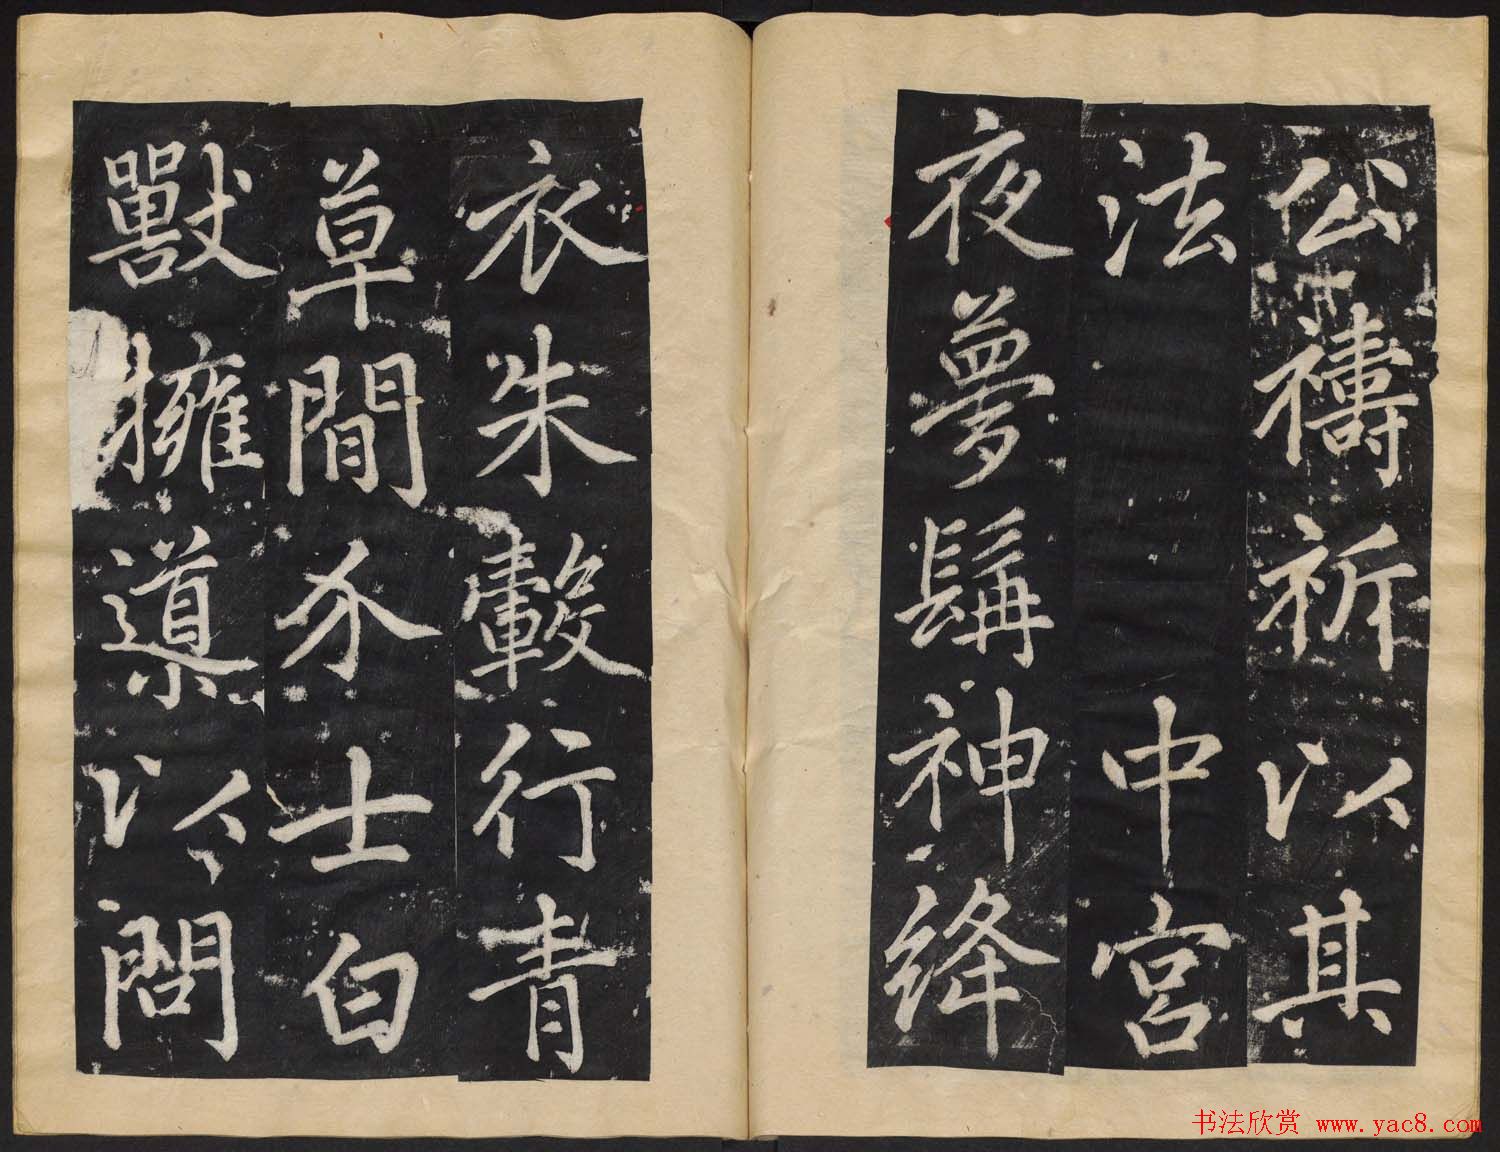 公禱祈以其
法 中宮
夜夢髯神絳
衣朱轂行青
草間介士白
獸擁導以問
书法欣赏 www.yac8.com